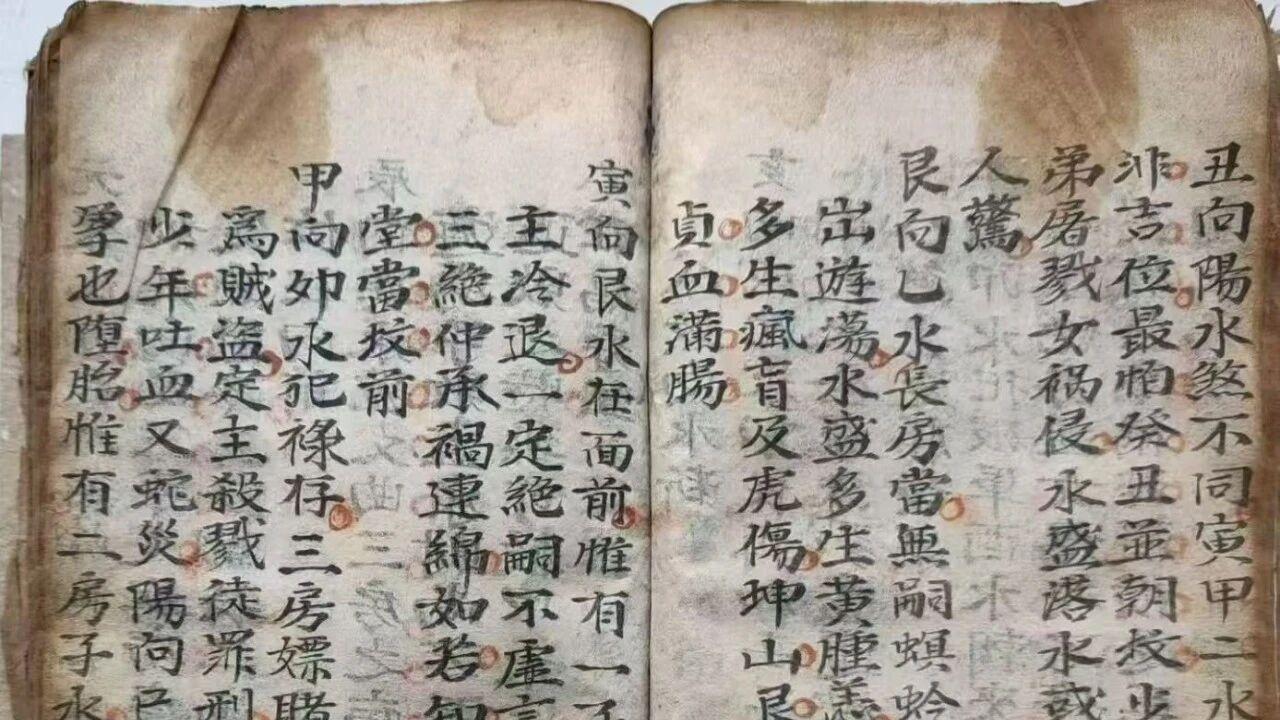 丑向陽水煞不同寅甲二水
非吉位最怕癸丑並朝坟少
弟屠戮女禍侵水盛落水或
人驚
艮向乙水長房當無嗣螟蛉
出遊蕩水盛多生黃腫恙
多生瘋盲及虎傷坤山艮
貞血滿腸
寅向艮水在面前惟有一子
主冷退一定絕嗣不虛言
三絕仲承禍連綿如若知
堂當坟前
甲向卯水犯祿存三房嫖賭
為賊盜定主殺戮徒罪刑
少年吐血又蛇災陽向已
孕也墮胎惟有二房子水